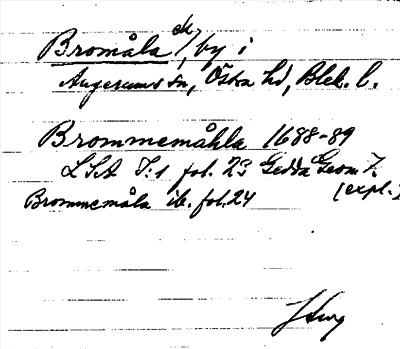 Bromåla, by i
Augerums sn, Östra hd, Blek. l.
Brommemåhla 1688-89
LSA I:1 fol. 23 Gedda Geom. 7.
Brommemåla ib. fol. 24 (expl.)